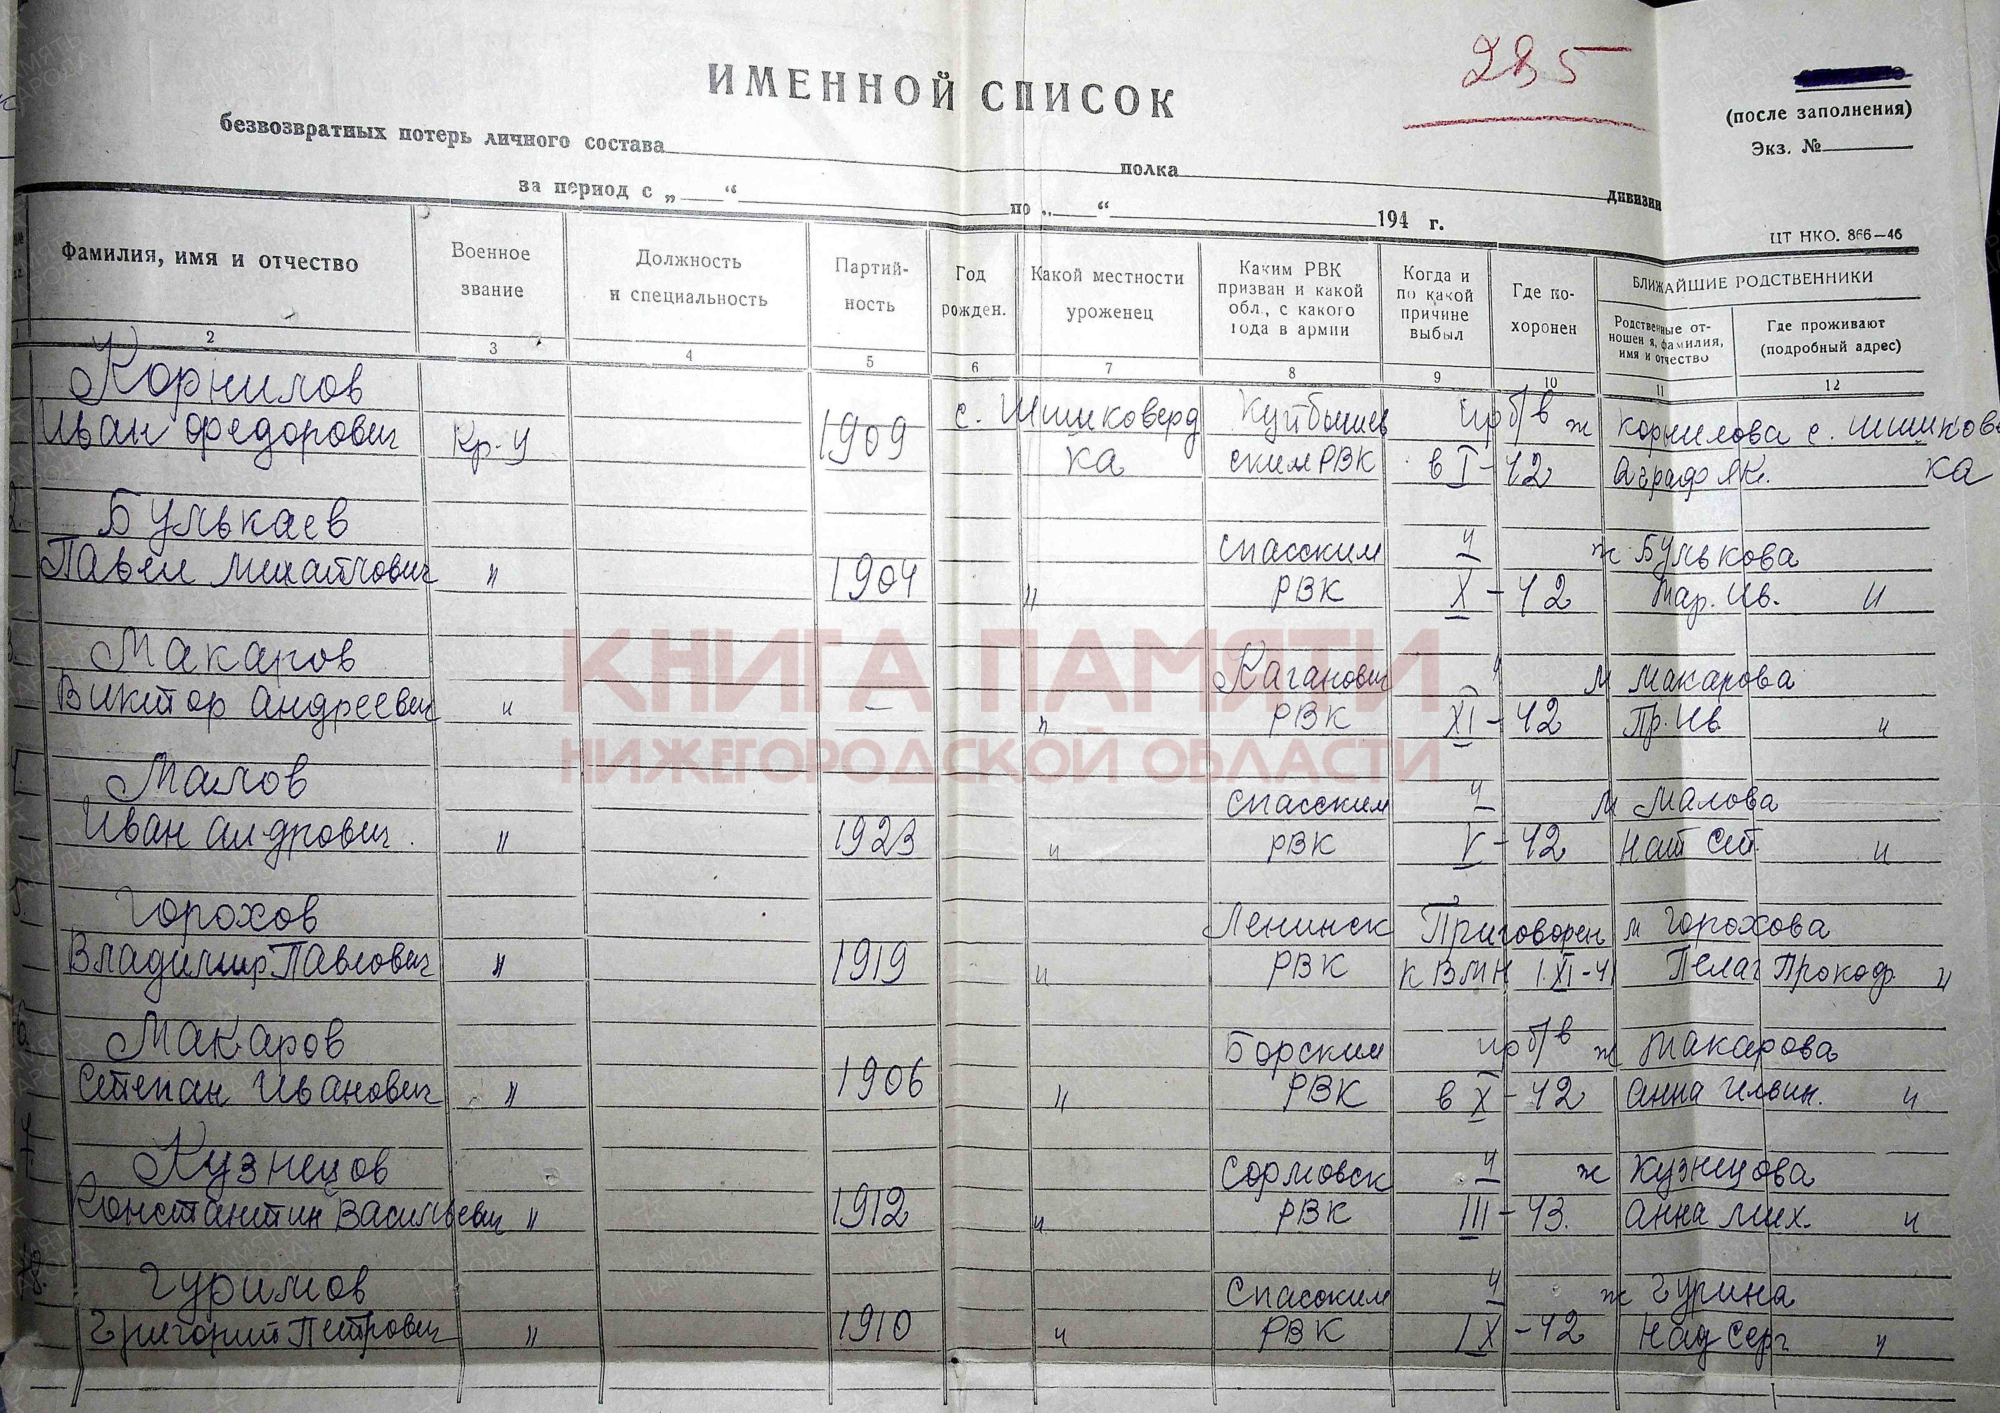 285
ИМЕННОЙ СПИСОК
(после заполнения)
Экз. №
безвозвратных потерь личного состава полка дивизии
за период с „ “ по „ “ 194 г.
ЦТ НКО. 866—46
Фамилия, имя и отчество
Военное звание
Должность и специальность
Партий-
ность
Год рожден.
Какой местности уроженец
Каким РВК
призван и какой
обл., с какого
года в армии
Когда и
по какой
причине
выбыл
Где по-
хоронен
БЛИЖАЙШИЕ РОДСТВЕННИКИ
Родственные от-
ношен я, фамилия,
имя и отчество
Где проживают
(подробный адрес)
1 2 3 4 5 6 7 8 9 10 11 12
Корнилов с. Шишковерд Куйбышев пр б/в ж Корнилова с. Шишков
Иван Федорович Кр-ц 1909 ка ским РВК в I-42 Аграф Як. ка
2. Булькаев Спасским ж Булькова
Павел Михайлович " 1904 " РВК X-42 Мар. Ив. "
3. Макаров Каганович " м Макарова
Виктор Андреевич " — " РВК XI-42 Пр. Ив "
4. Малов Спасским " м Малова
Иван " 1923 " РВК V-42 "
5. Горохов Ленинск Приговорен м Горохова
Владимир Павлович " 1919 " РВК к ВМН 1.XI-41 Пелаг Прокоф. "
6. Макаров Борским пр б/в ж Макарова
Степан Иванович " 1906 " РВК в X-42 Анна "
7. Кузнецов Сормовск " ж Кузнецова
Константин Васильевич " 1912 " РВК III-43. Анна Мих. "
8. Гурилов Спасским " ж Гурина
Григорий Петрович " 1910 " РВК IX-42 Над Серг "
КНИГА ПАМЯТИ
НИЖЕГОРОДСКОЙ ОБЛАСТИ